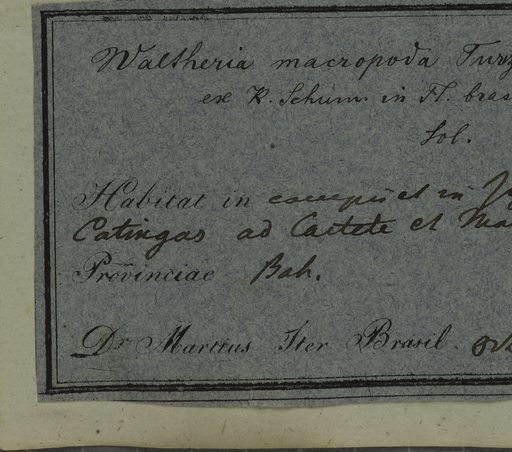 Waltheria macropoda Turz
ex K. Schum. in Fl. bras
fol.
Habitat in campis et in
Catingas ad Caitete et Ma
Provinciae Bah.
Dr Martius Iter Brasil.